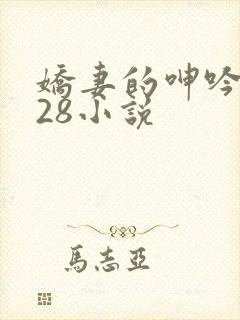 嬌妻的呻吟
28小說
馬志亞